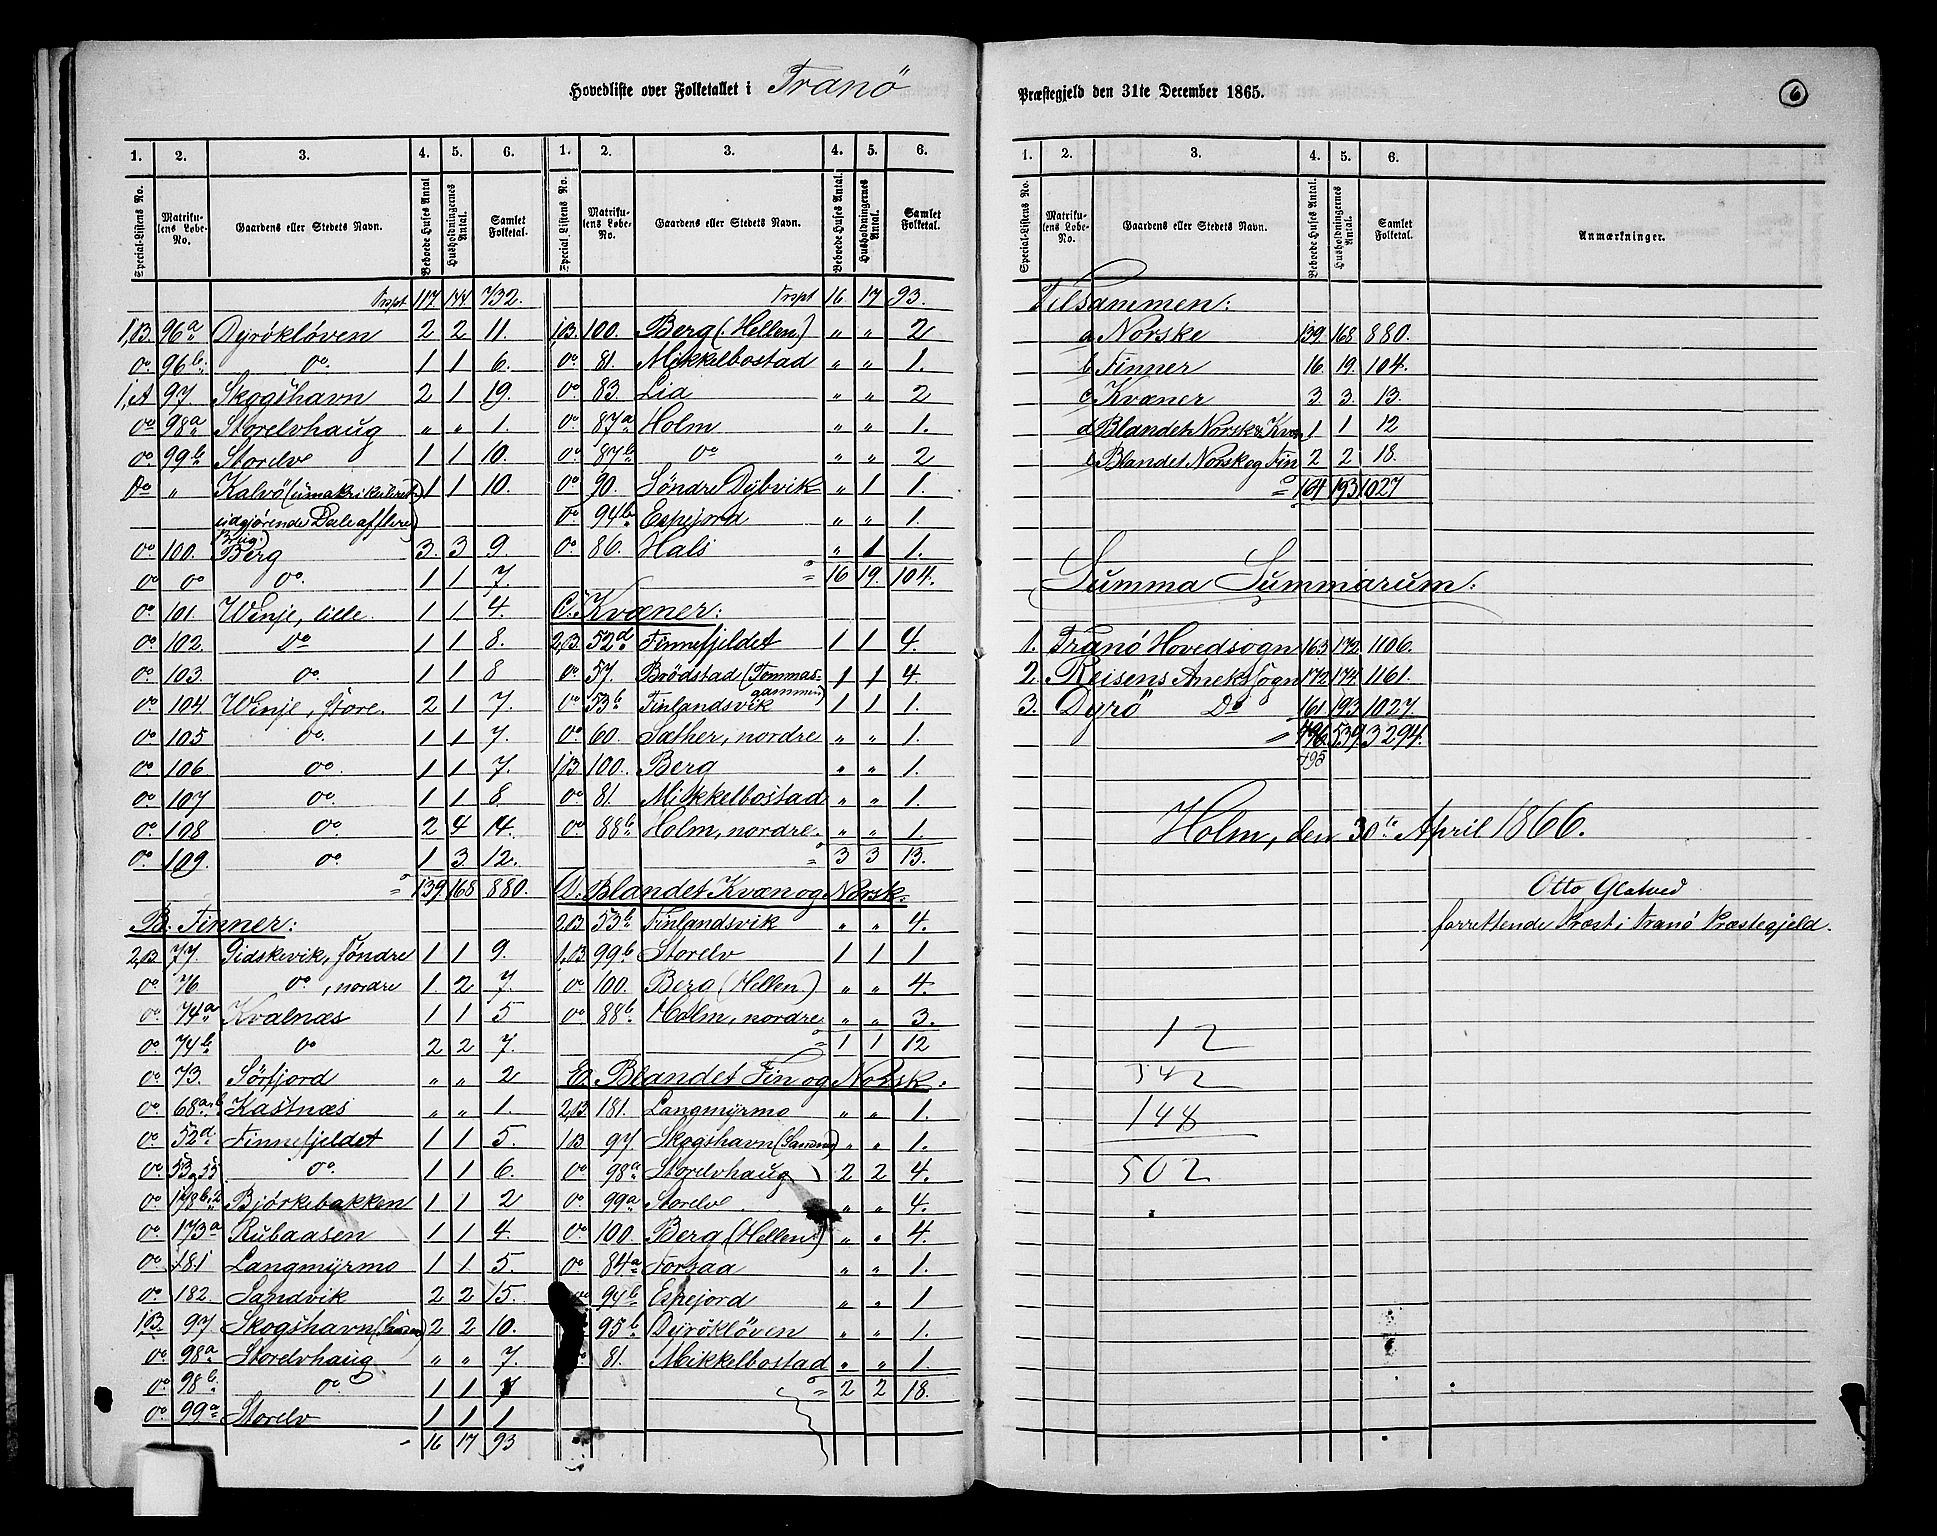 Hovedliste over Folketallet i Tranö
1. 2. 3. 4. 5. 6. 1. 2. 3. 4. 5. 6.
Special-Listens No. Matrikulens Løbe-No. Gaardens eller Stedets Navn. Beboede Huses Antal Husholdningernes Antal. Samlet Folketal. Special-Listens No. Matrikulens Løbe-No. Gaardens eller Stedets Navn. Beboede Huses Antal. Husholdningernes Antal. Samlet Folketal.
Trspt 117 144 732.
1,B. 96a Dyrökløven 2 2 11.
do 96b. do. 1 1 6.
1,A 97. Skogshavn 2 1 19.
do 98a Storelvhaug " " 1.
do. 99b Storelv 1 1 10.
Do " Kalvö (umatrikuleret 1 1 10.
udgjørende Dele af flere
Brug.)
do 100. Berg 3. 3 9.
do do do. 1 1 7.
do. 101. Winje, lille 1 1 4.
do 102. Do 1 1 8.
do. 103. do. 1 1 8
do. 104. Winje, store. 2 1 7.
do. 105 do. 1 1 7.
do. 106 do. 1 1 7.
do. 107 do. 1 1 8
do. 108 do. 2 4 14.
do. 109. do. 1 3. 12.
= 139 168 880.
B. Finner:
2,B 77. Gidskevik, søndre 1 1 9.
do. 76 do, nordre 1. 2 7.
do. 74a Kvalnæs 1 1 5
do. 74b do 2 2 7.
do. 73. Sörfjord " " 2
do. 68a,b Kastnæs " " 1.
do. 52d Finnefjeldet 1 1 5.
do 53, 55 do. 1 1 6.
do 178b,2 Bjørkebakken 1 1 2
do. 173a Rubaasen 1 1 4
do 181 Langmyrmo 1 1 5.
do. 182. Sandvik 2 2 15.
1,B. 97 Skogshavn 2 2 10.
do. 98a Storelvhaug " " 7.
do 98b. do. 1 1 7
do. 99a Storelv 1 1 1
16 17 93
Trspt 16 17 93.
1,B. 100. Berg (Hellen) " " 2
do. 81. Mikkelbostad " " 1.
do 83. Lia " " 2
do. 87a Holm " " 1.
do. 87b do " " 2
do. 90. Søndre Dybvik " 1 1.
do 94b Espejord " " 1.
do. 86. Hals " 1 1.
= 16 19. 104.
C. Kvæner:
2,B. 52d Finnefjeldet 1 1 4.
do. 57. Brödstad (Tommas-
gammen) 1 1 4
do 53b Finlandsvik 1 1 1.
do. 60. Sæther, nordre " " 1.
1,B 100. Berg " " 1.
do. 81. Mikkelbostad " " 1.
do. 88b Holm, nordre. " " 1.
= 3 3 13.
D. Blandet Kvæn og Norsk.
2,B 53b Finlandsvik " " 4.
1,B 99b Storelv 1 1 1
do. 100. Berg (Hellen) " " 4.
do. 88b. Holm, nordre. " " 3.
1 1 12
E. Blandet Fin og Norsk.
2,B 181. Langmyrmo " " 1.
1,B 97. Skogshavn " " 1.
do. 98a Storelvhaug 2 2 4.
do. 99a Storelv " " 4.
do 100. Berg (Hellen) " " 4
do. 84a Forsaa " " 1.
94b Espejord " " 1
95b Dyrökløven " " 1.
81. Mikkelbostad " " 1.
= 2 2 18.
Præstegjeld den 31te December 1865.
6
1. 2. 3. 4. 5. 6.
Special-Listens No. Matrikulens Løbe-No. Gaardens eller Stedets Navn. Beboede Huses Antal. Husholdningernes Antal. Samlet Folketal. Anmærkninger.
Tilsammen:
a Norske 139. 168 880.
b Finner 16. 19. 104.
c Kvæner 3. 3. 13.
d Blandet Norsk & Kvæn 1 1 12
e Blandet Norsk og Fin 2 2 18.
= 161 193 1027
Summa Summarum:
1. Tranö Hovedsogn 163 172 1106.
2. Reisens Anekssogn 172 174 1161.
3. Dyrö Do 161 193 1027.
= 496 539 3294.
495
Holm, den 30te April 1866.
Otto Glatved
forrettende Præst i Tranö Præstegjeld.
12
342
148
502